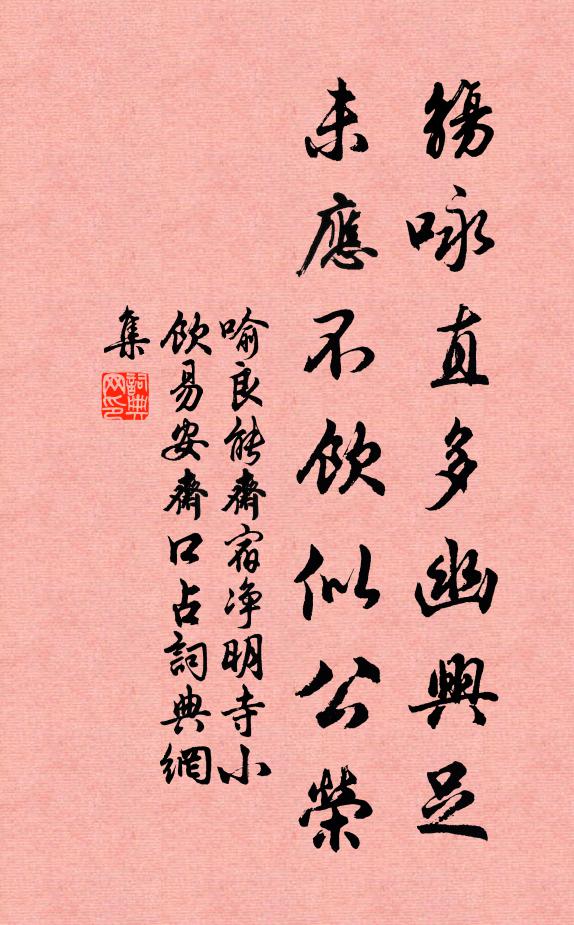 觴咏直多幽興足
未應不飲似公榮
喻良能齋宿净明寺小
飲易安齋口占詞典網
集
詞典网印